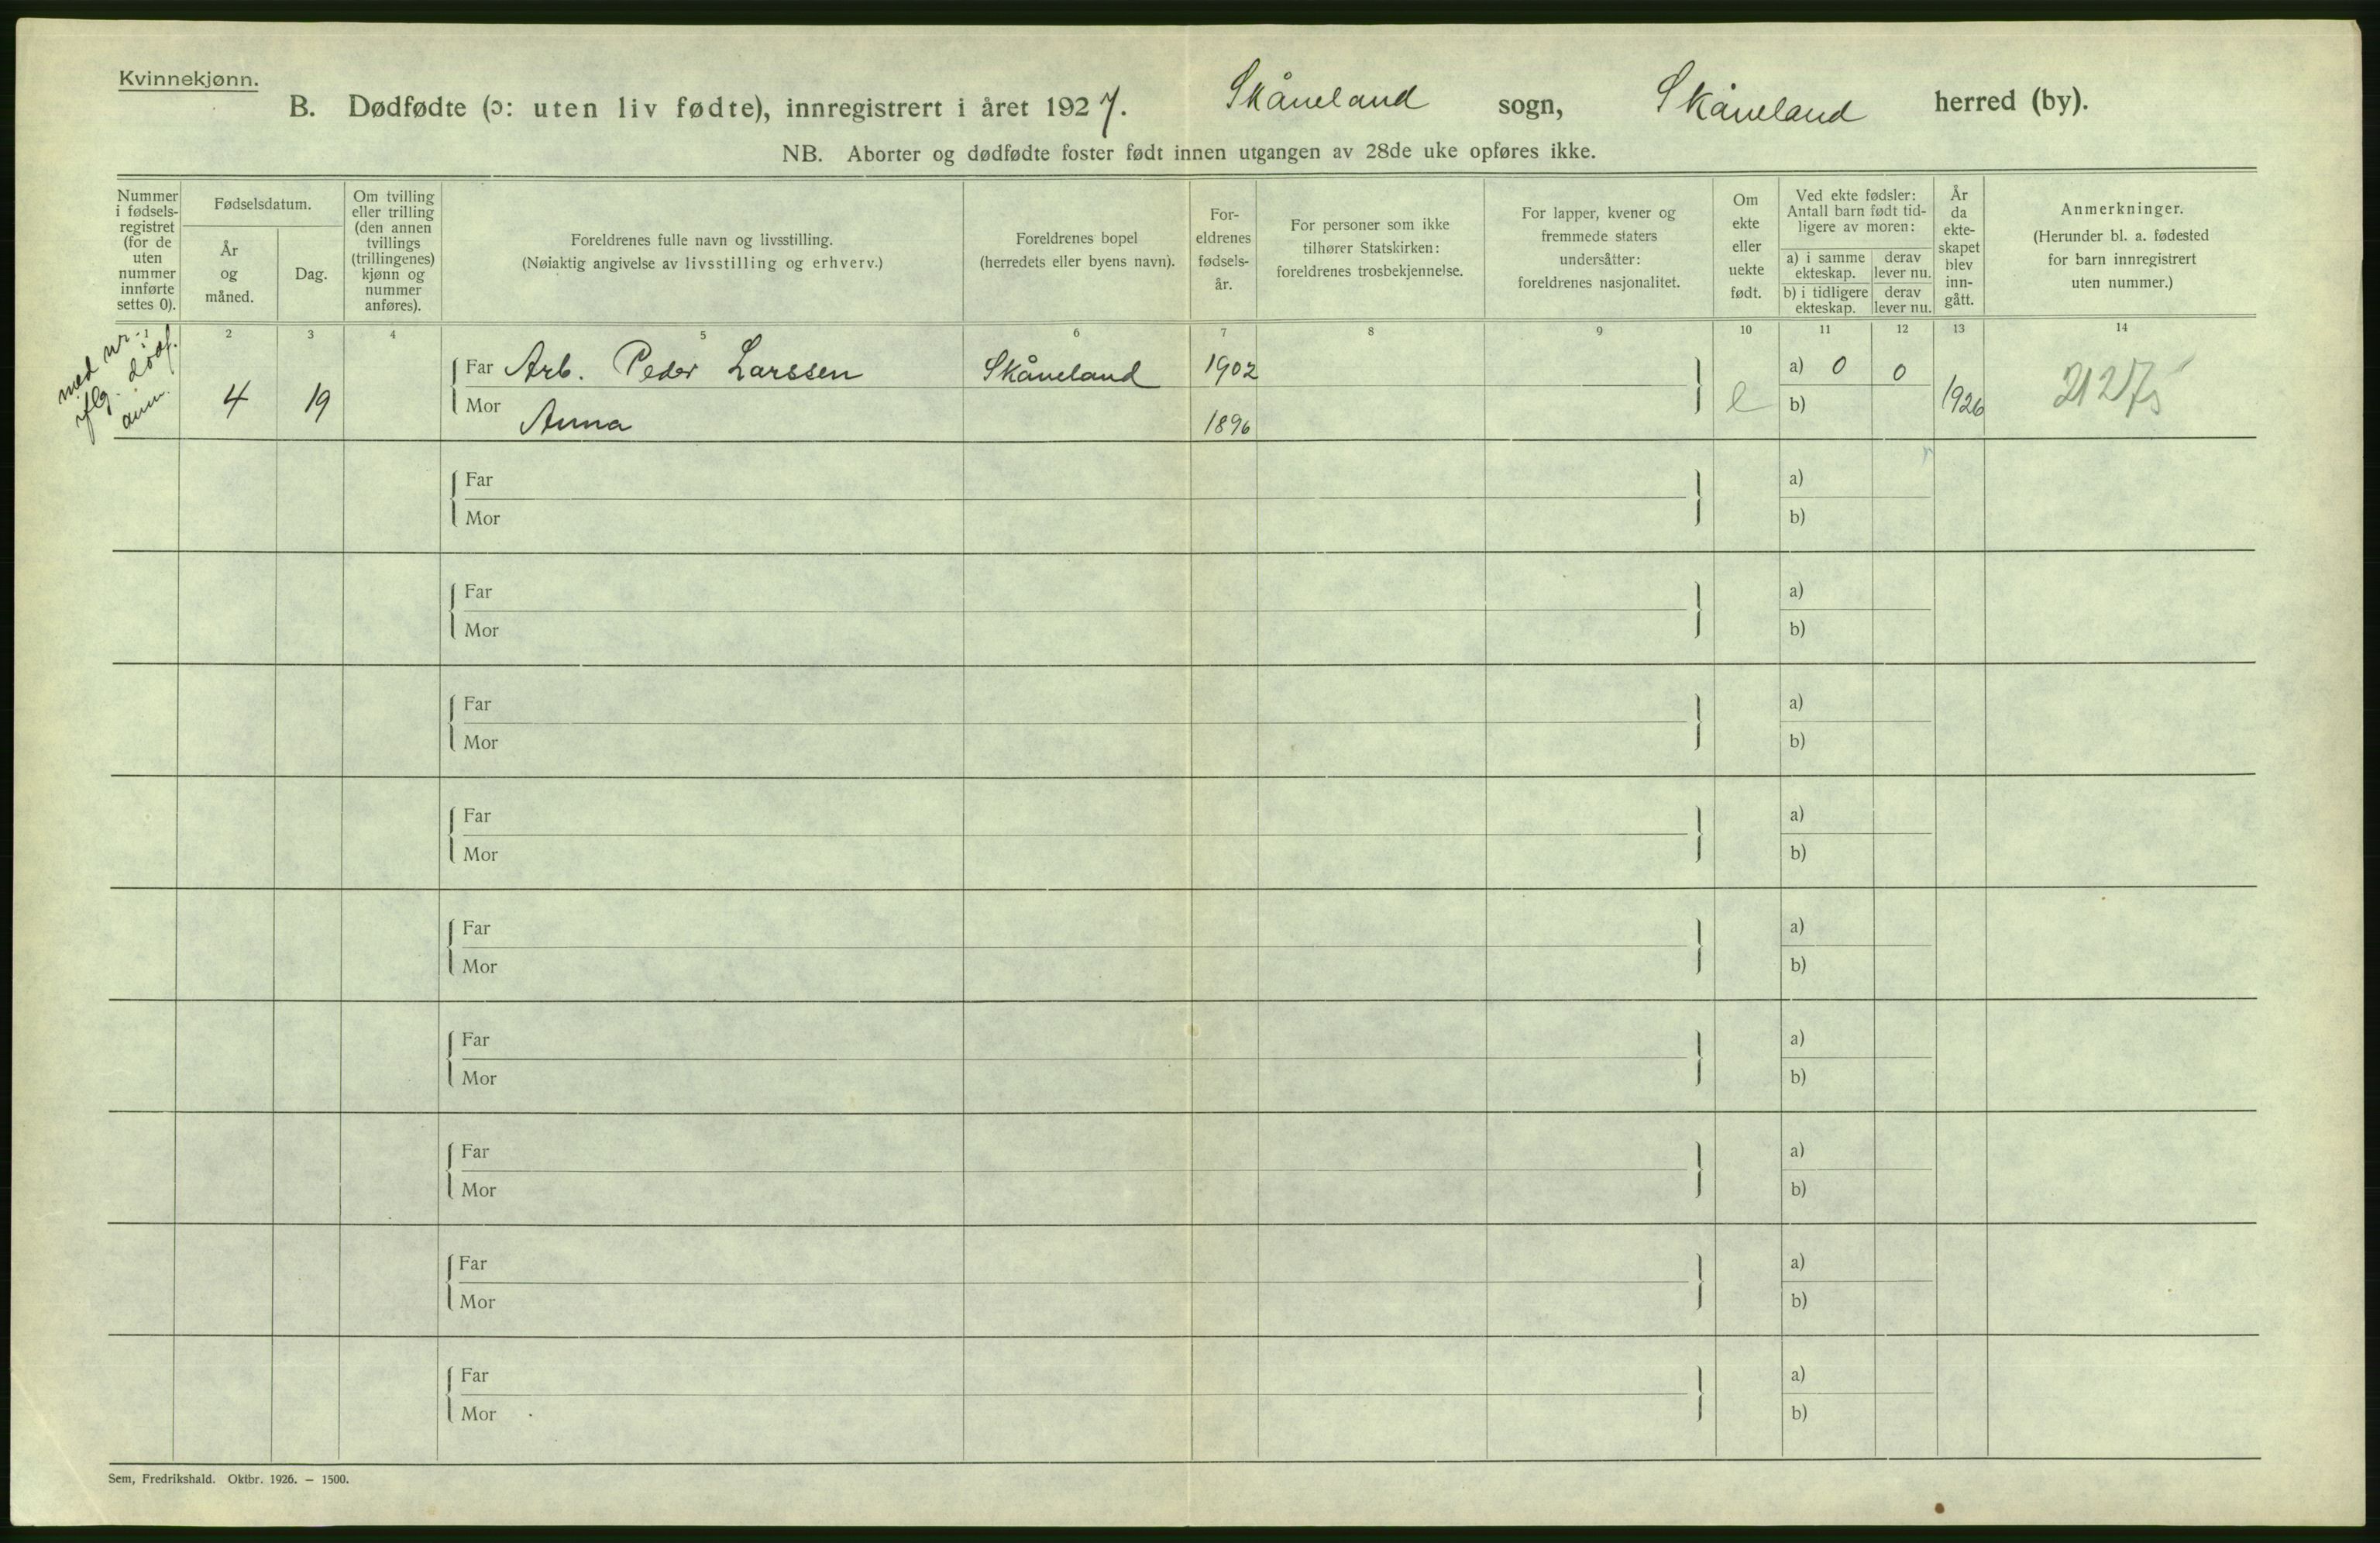 Kvinnekjønn.
B. Dødfødte (ɔ: uten liv fødte), innregistrert i året 1927. Skåneland sogn, Skåneland herred (by).
NB. Aborter og dødfødte foster født innen utgangen av 28de uke opføres ikke.
Nummer i fødsels-registret (for de uten nummer innførte settes 0).
Fødselsdatum.
År og måned.
Dag.
Om tvilling eller trilling (den annen tvillings (trillingenes) kjønn og nummer anføres).
Foreldrenes fulle navn og livsstilling.
(Nøiaktig angivelse av livsstilling og erhverv.)
Foreldrenes bopel
(herredets eller byens navn).
For-eldrenes fødsels-år.
For personer som ikke tilhører Statskirken: foreldrenes trosbekjennelse.
For lapper, kvener og fremmede staters undersåtter: foreldrenes nasjonalitet.
Om ekte eller uekte født.
Ved ekte fødsler: Antall barn født tid-ligere av moren:
a) i samme ekteskap. derav lever nu.
b) i tidligere ekteskap. derav lever nu.
År da ekte-skapet blev inn-gått.
Anmerkninger.
(Herunder bl. a. fødested for barn innregistrert uten nummer.)
1 2 3 4 5 6 7 8 9 10 11 12 13 14
med nr.
iflg. dødf.
anm.
4 19
Far Arb. Peder Larssen Skåneland 1902 a) 0 0
Mor Anna 1896 e b) 1926
2127
Far a)
Mor b)
Far a)
Mor b)
Far a)
Mor b)
Far a)
Mor b)
Far a)
Mor b)
Far a)
Mor b)
Far a)
Mor b)
Far a)
Mor b)
Far a)
Mor b)
Sem, Fredrikshald. Oktbr. 1926. — 1500.